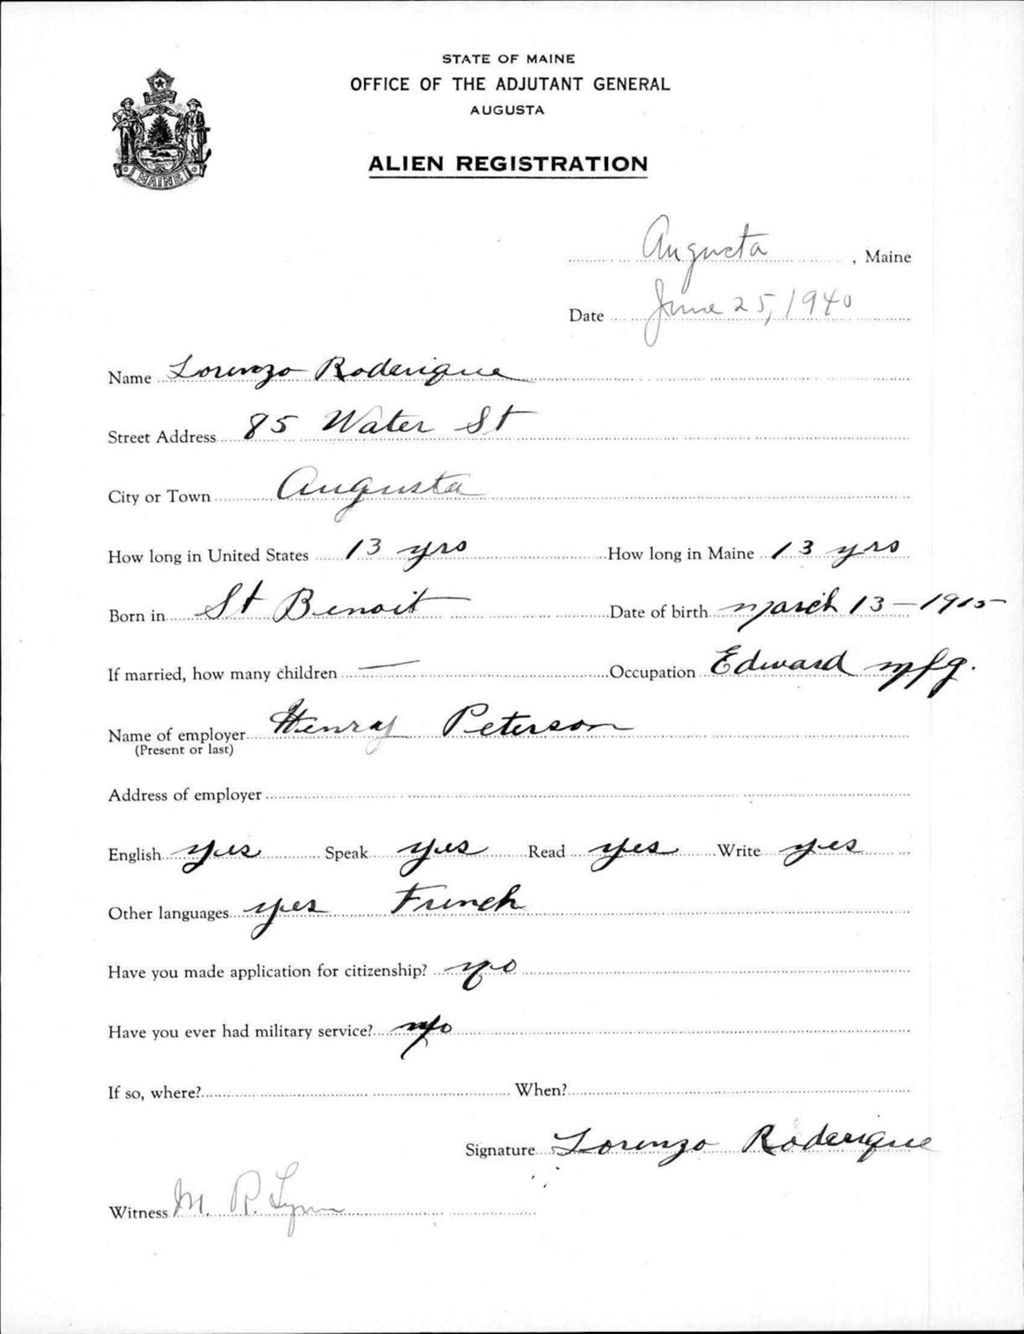 STATE OF MAINE
OFFICE OF THE ADJUTANT GENERAL
AUGUSTA
ALIEN REGISTRATION
MAINE
Augusta, Maine
Date June 25, 1940
Name Lorenzo Roderigue
Street Address 85 Water St
City or Town Augusta
How long in United States 13 yrs How long in Maine 13 yrs
Born in St Benoit Date of birth March 13 - 1915
If married, how many children — Occupation Edward Mfg.
Name of employer Henry Peterson
(Present or last)
Address of employer
English yes Speak yes Read yes Write yes
Other languages yes French
Have you made application for citizenship? no
Have you ever had military service? no
If so, where? When?
Signature Lorenzo Roderigue
Witness M. R. Lynn